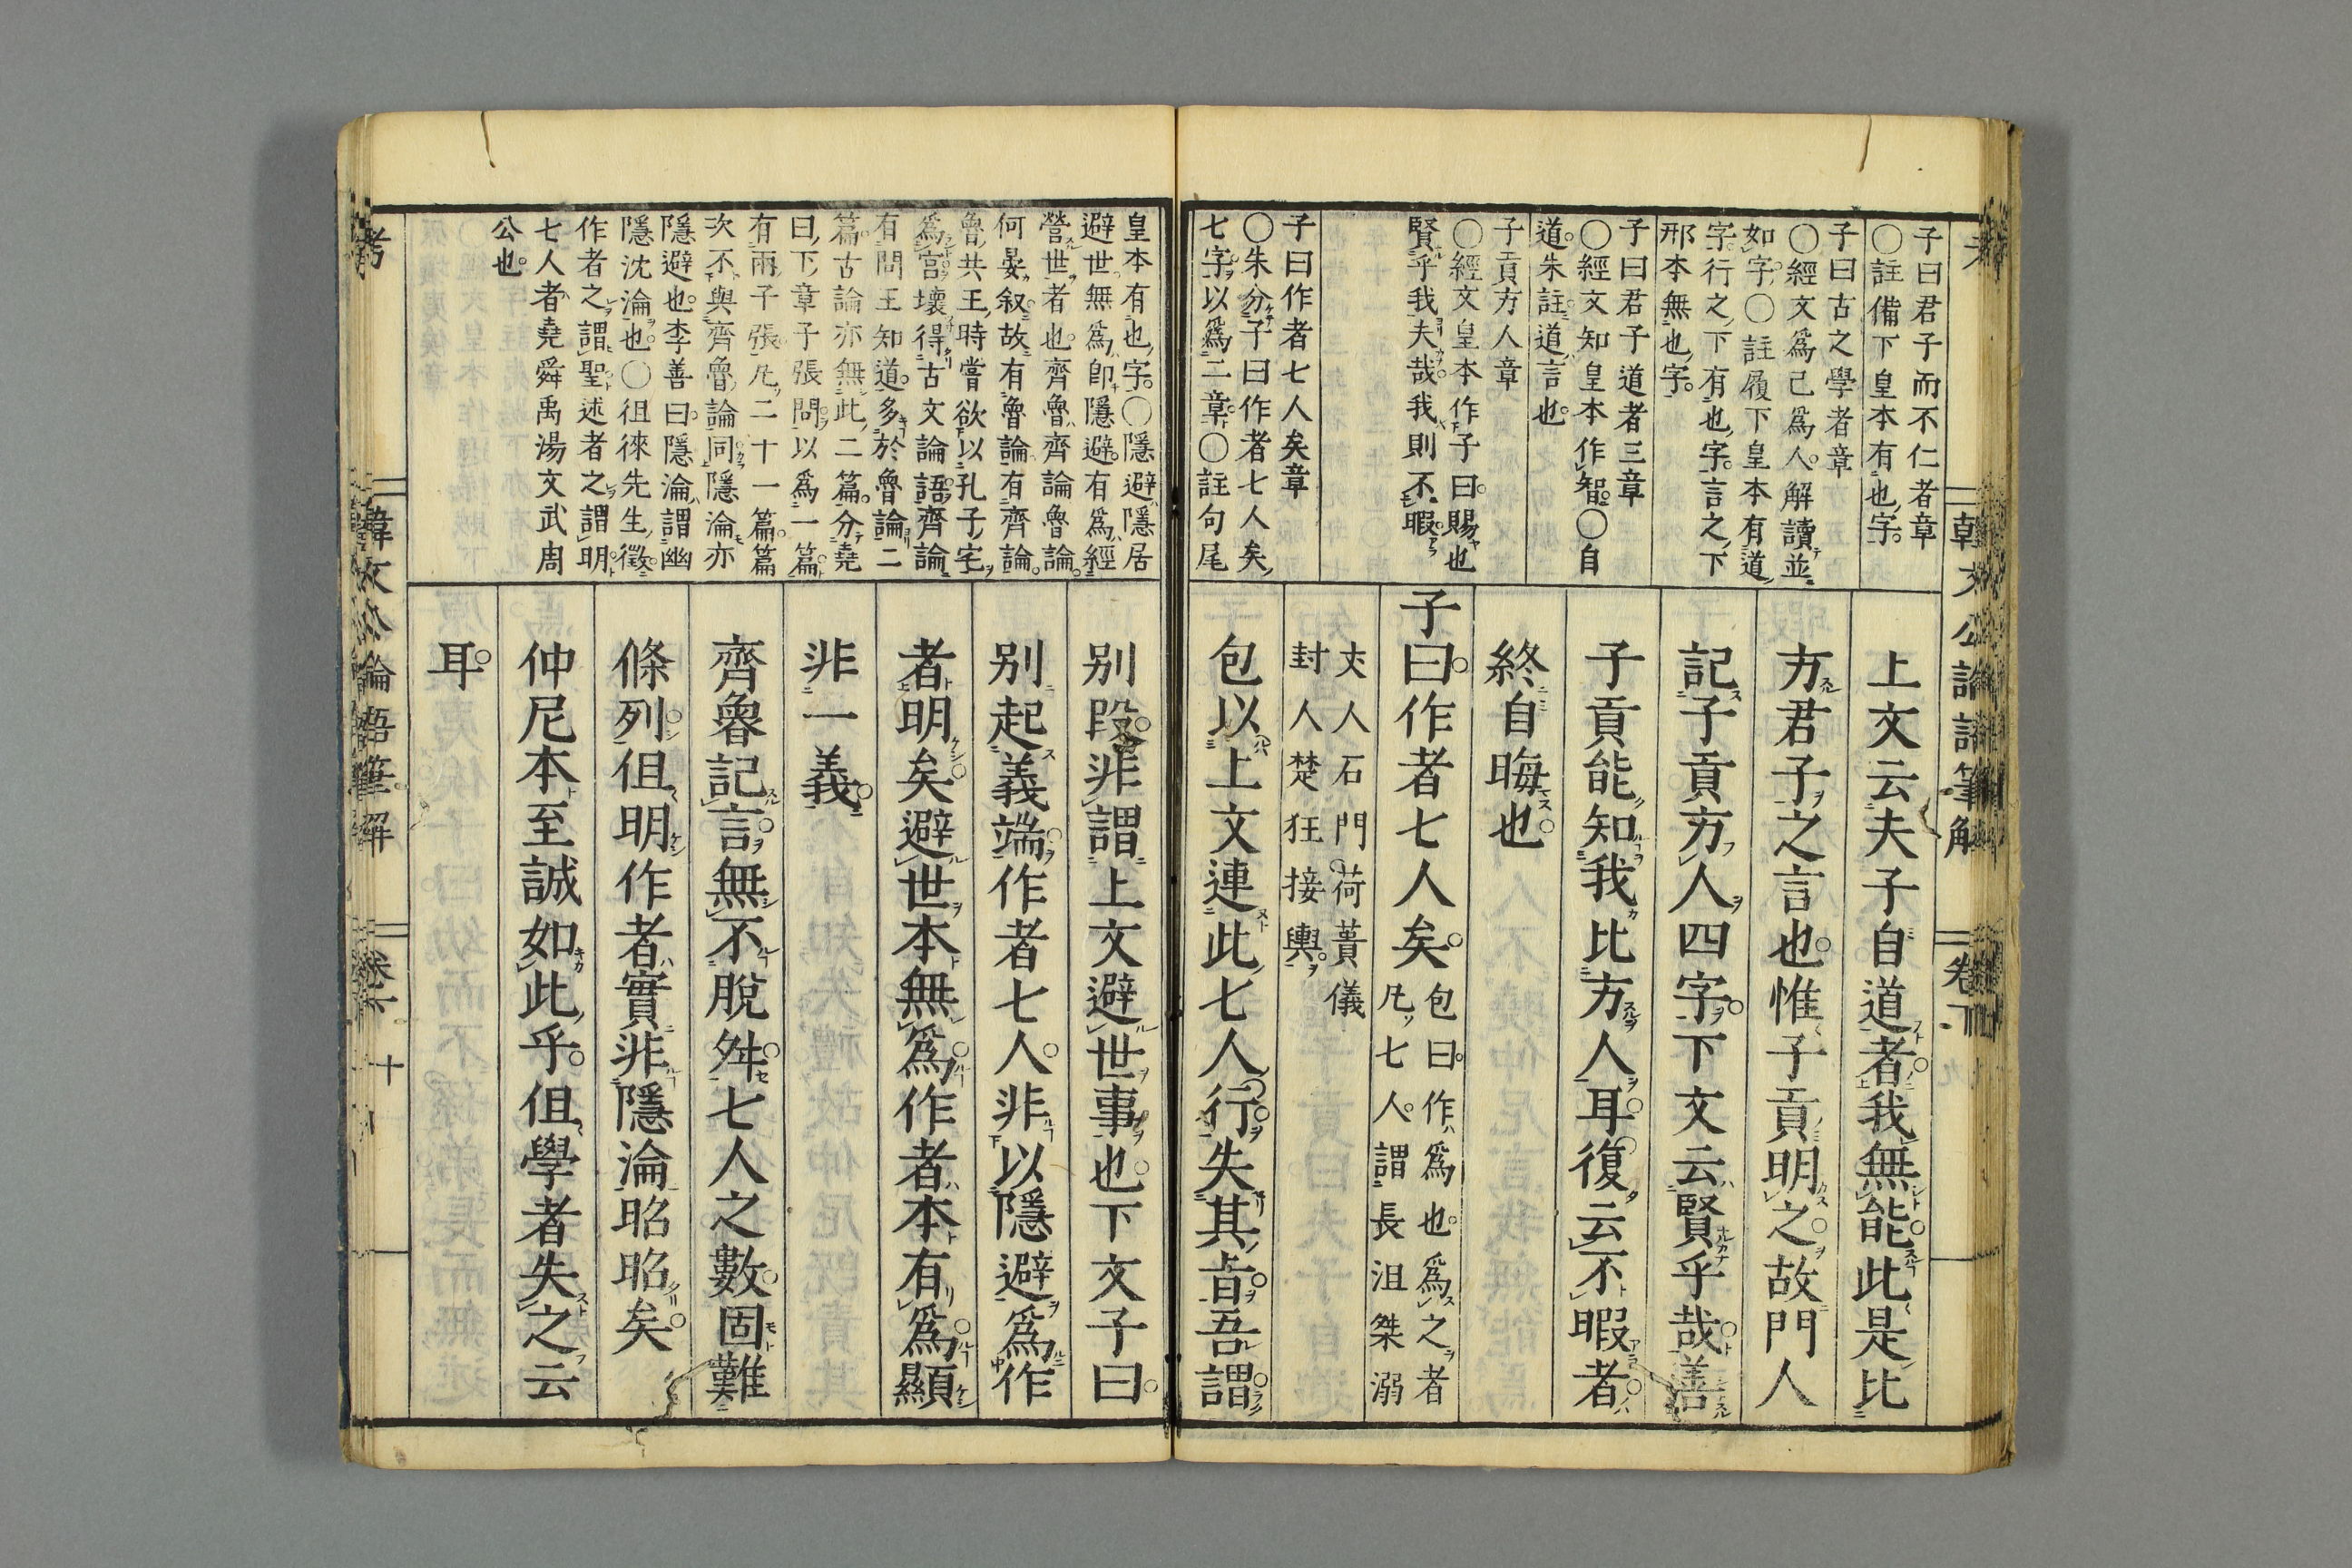 子曰君子而不仁者章
〇註備下皇本有也字
子曰古之學者章
〇經文爲己爲人解讀並
如字〇註履下皇本有道
字行之下有也字言之下
邢本無也字
子曰君子道者三章
〇經文知皇本作智〇自
道朱註道言也
子貢方人章
〇經文皇本作子曰賜也
賢乎我夫哉我則不暇
子曰作者七人矣章
〇朱分子曰作者七人矣
七字以爲二章〇註句尾
上文云夫子自道者我無能此是比
方君子之言也惟子貢明之故門人
記子貢方人四字下文云賢乎哉善
子貢能知我比方人耳復云不暇者
終自晦也
子曰作者七人矣包曰作爲也爲之者
凡七人謂長沮桀溺
丈人石門荷蕢儀
封人楚狂接輿
包以上文連此七人行失其旨吾謂
皇本有也字〇隱避隱居
避世無爲卽隱避有爲經
營世者也齊魯齊論魯論
何晏叙故有魯論有齊論
魯共王時嘗欲以孔子宅
爲宮壞得古文論語齊論
有問王知道多於魯論二
篇古論亦無此二篇分堯
曰下章子張問以爲一篇
有兩子張凡二十一篇篇
次不與齊魯論同隱淪亦
隱避也李善曰隱淪謂幽
隱沈淪也〇徂徠先生徵
作者之謂聖述者之謂明
七人者堯舜禹湯文武周
公也
別段非謂上文避世事也下文子曰
別起義端作者七人非以隱避爲作
者明矣避世本無爲作者本有爲顯
非一義
齊魯記言無不脫舛七人之數固難
條列但明作者實非隱淪昭昭矣
仲尼本至誠如此乎但學者失之云
耳
韓文公論語筆解
卷下
考
韓文公論語筆解
卷下
十